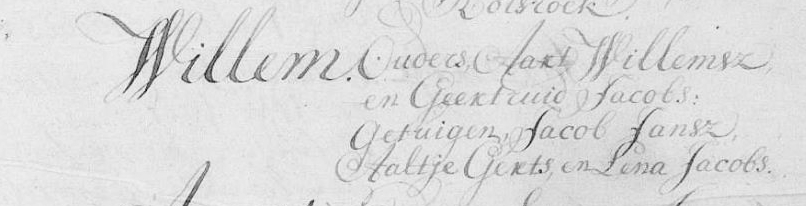 Kolsloek.
Willem. Ouders, Aart Willemsz,
en Geertruid Jacobs:
Getuigen, Jacob Jansz,
Aaltje Gerts, en Lena Jacobs.